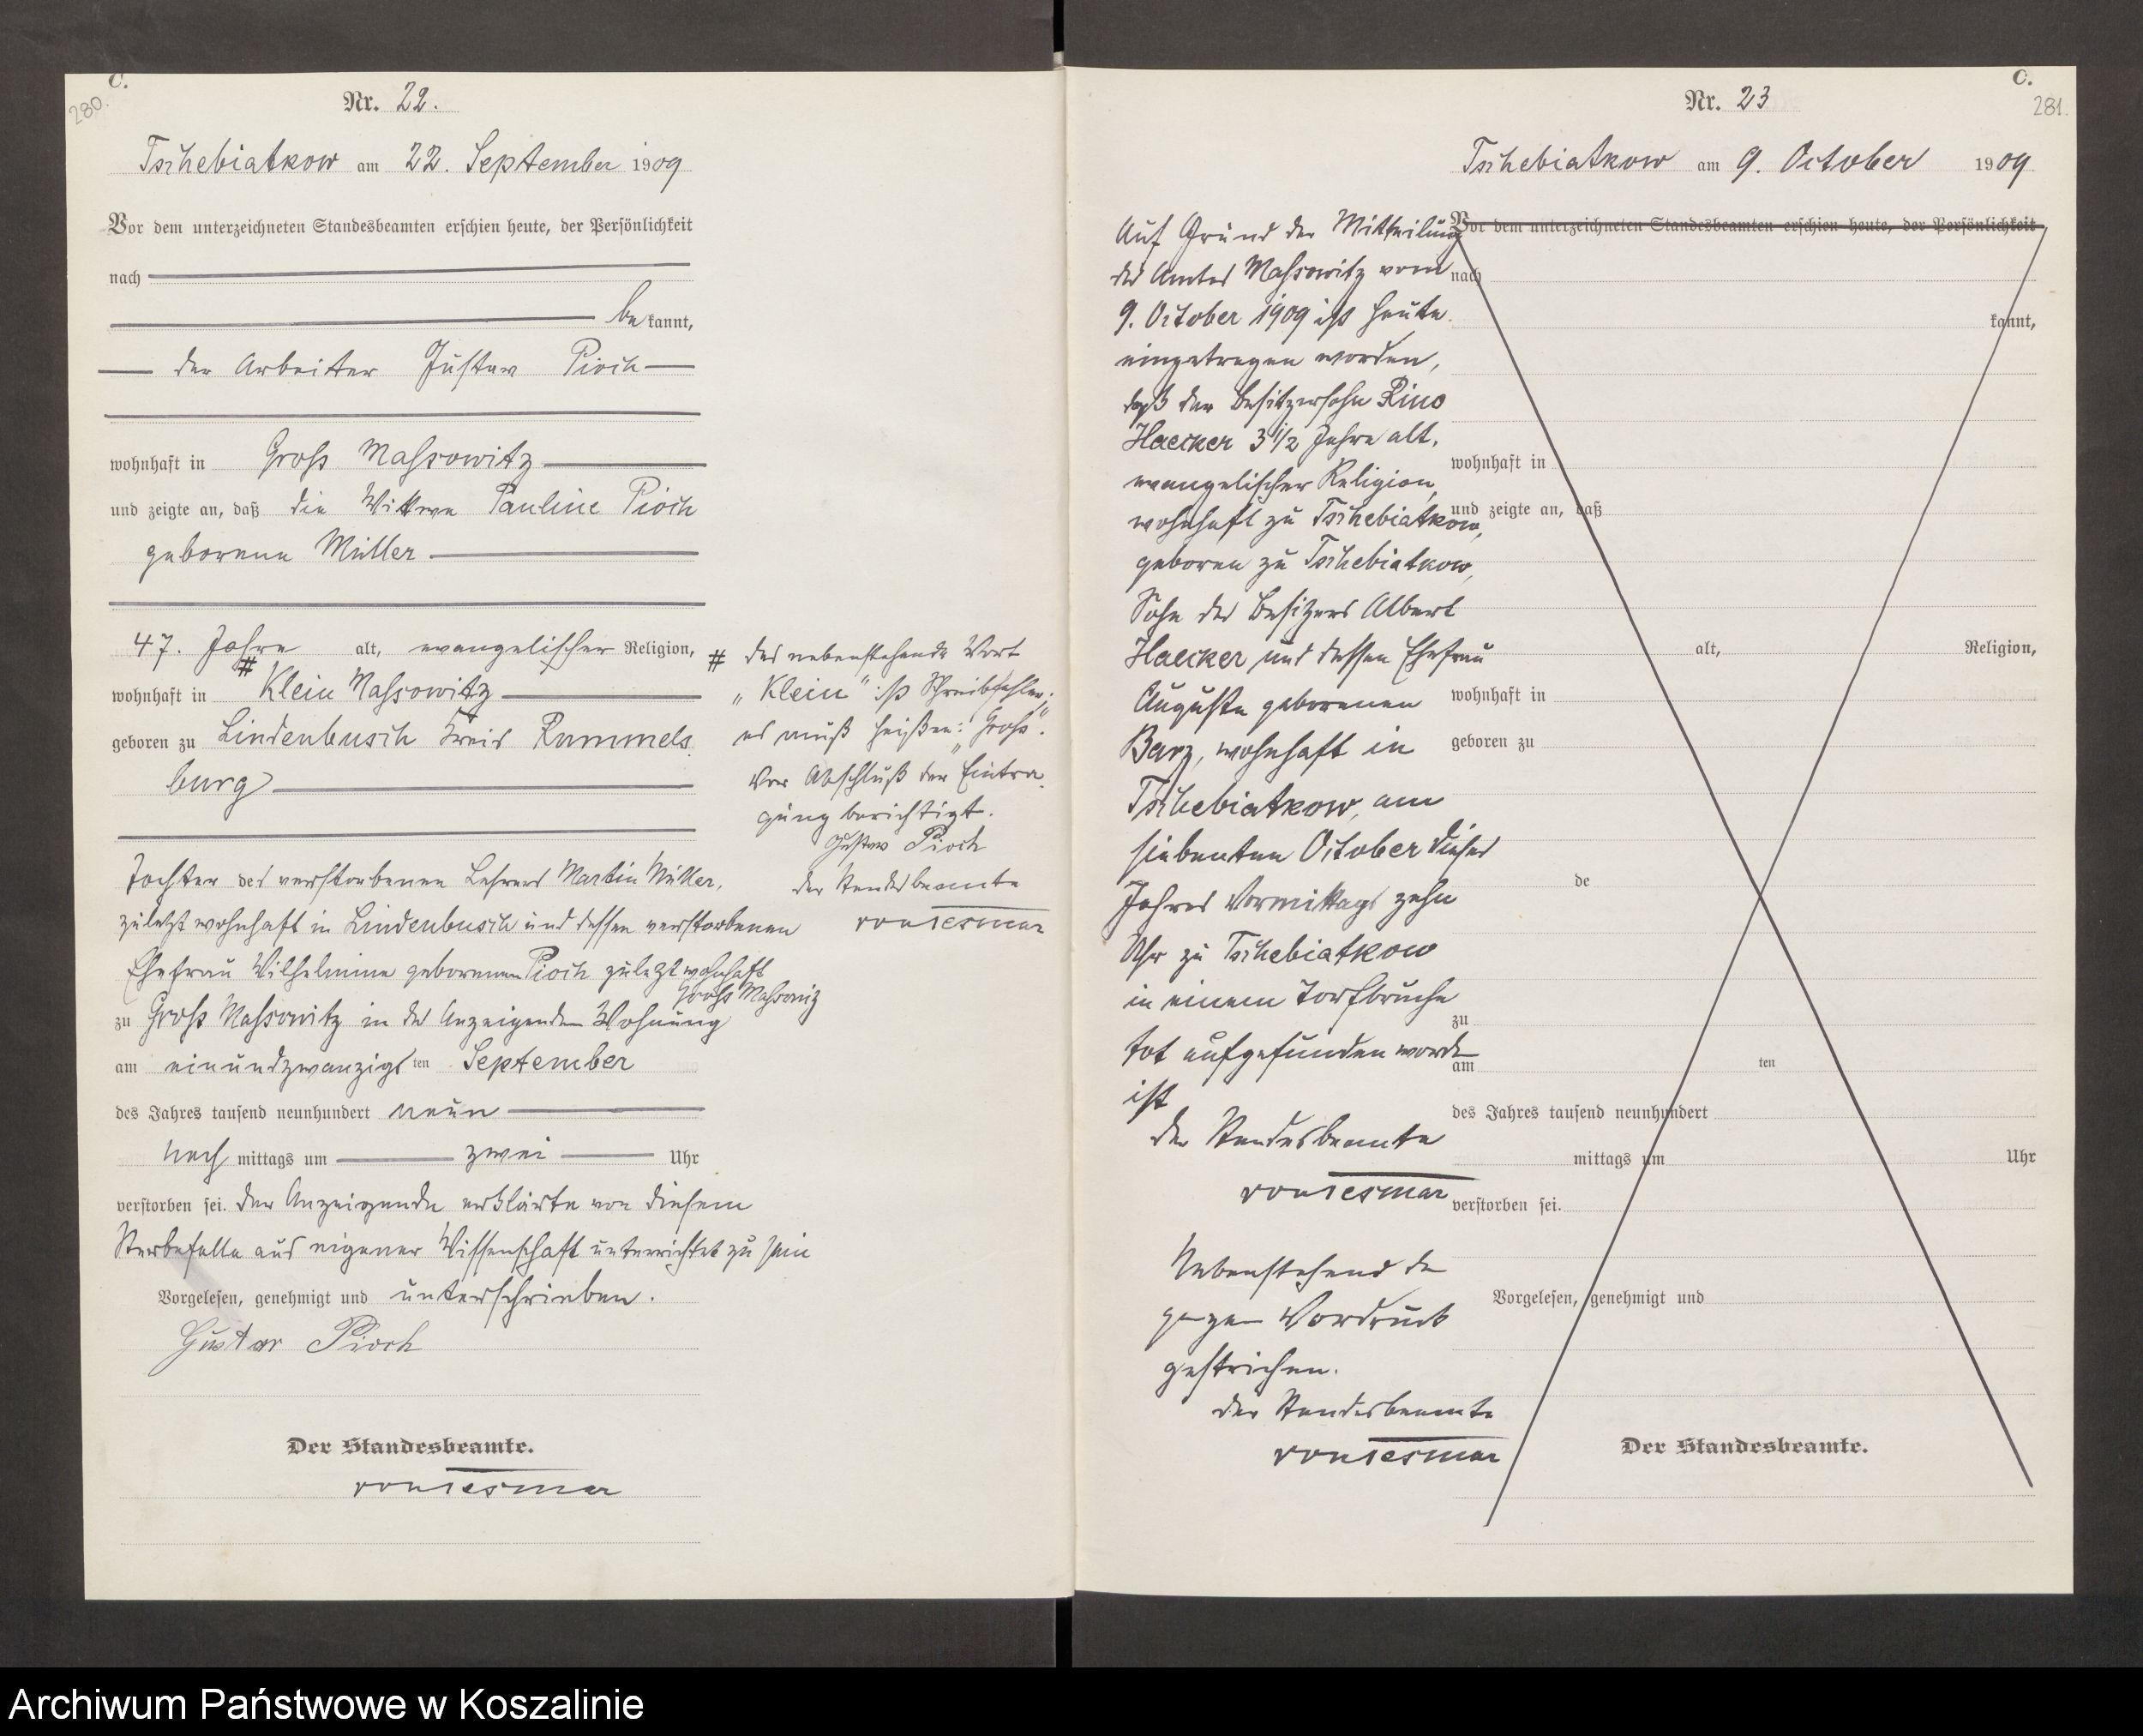 C.
280.
Nr. 22.
Tschebiatkow am 22. September 1909
Vor dem unterzeichneten Standesbeamten erschien heute, der Persönlichkeit
nach
be kannt,
der Arbeiter Gustav Pioch
wohnhaft in Gross Massowitz
und zeigte an, daß die Wittwe Pauline Pioch
geborene Müller
47. Jahre alt, evangelischer Religion,
wohnhaft in # Klein Massowitz
geboren zu Lindenbusch Kreis Rummels
burg
Tochter des verstorbenen Lehrers Martin Müller,
zuletzt wohnhaft in Lindenbusch und dessen verstorbenen
Ehefrau Wilhelmine geborenen Pioch zuletzt wohnhaft
Gross Massowitz
zu Gross Massowitz in der Anzeigenden Wohnung
am einundzwanzigsten September
des Jahres tausend neunhundert neun
nach mittags um zwei Uhr
verstorben sei. Der Anzeigende erklärte von diesem
Sterbefalle aus eigener Wissenschaft unterrichtet zu sein
Vorgelesen, genehmigt und unterschrieben.
Gustav Pioch
Der Standesbeamte.
von Tesmar
# das nebenstehende Wort
„Klein" ist Schreibfehler,
es muß heißen: „Gross".
Vor Abschluß der Eintra-
gung berichtigt.
Gustav Pioch
der Standesbeamte
von Tesmar
C.
281.
Nr. 23
Tschebiatkow am 9. October 1909
Auf Grund der Mitteilung
des Amtes Massowitz vom
9. October 1909 ist heute
eingetragen worden,
daß der Besitzersohn
Haecker 3 1/2 Jahre alt,
evangelischer Religion,
wohnhaft zu Tschebiatkow,
geboren zu Tschebiatkow,
Sohn des Besitzers Albert
Haecker und dessen Ehefrau
Auguste geborenen
Barz, wohnhaft in
Tschebiatkow, am
siebenten October dieses
Jahres Vormittags zehn
Uhr zu Tschebiatkow
in einem Torfbruche
tot aufgefunden worden
ist
der Standesbeamte
von Tesmar
Nebenstehend
Vordruck
gestrichen.
der Standesbeamte
von Tesmar
Vor dem unterzeichneten Standesbeamten erschien heute, der Persönlichkeit
nach
kannt,
wohnhaft in
und zeigte an, daß
alt, Religion,
wohnhaft in
geboren zu
de
zu
am ten
des Jahres tausend neunhundert
mittags um Uhr
verstorben sei.
Vorgelesen, genehmigt und
Der Standesbeamte.
Archiwum Państwowe w Koszalinie